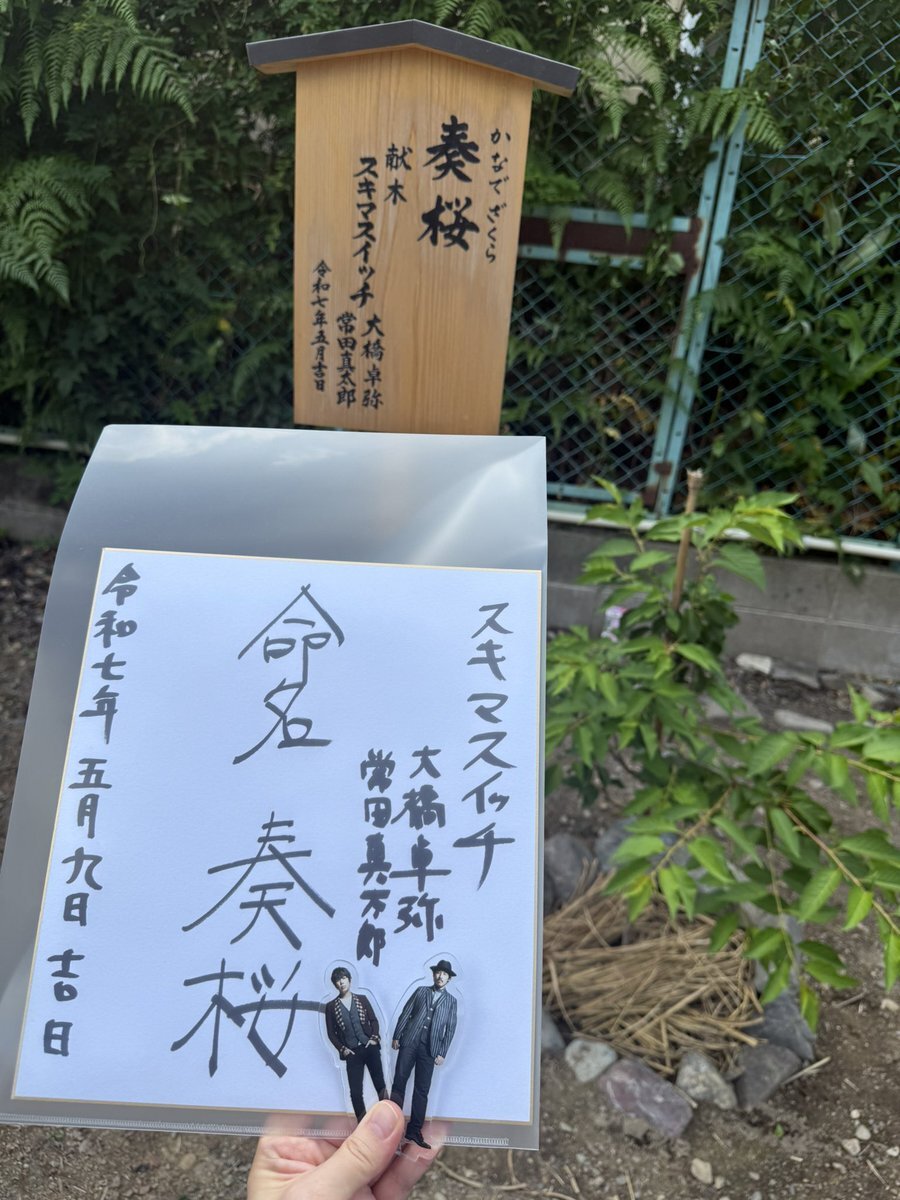 かなでざくら
奏桜
献木
スキマスイッチ
大橋卓弥
常田真太郎
令和七年五月吉日
スキマスイッチ
大橋卓弥
常田真太郎
命名 奏桜
令和七年 五月九日 吉日